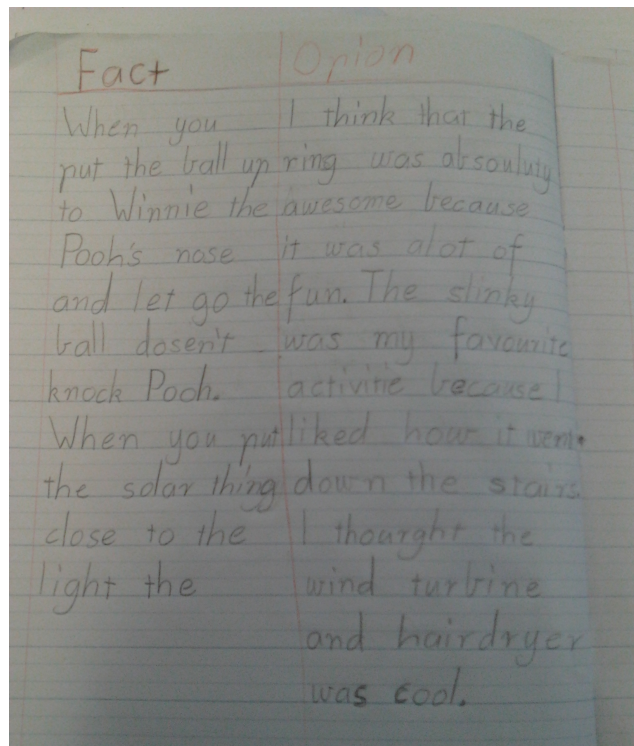 Fact
When you
put the ball up
to Winnie the
Pooh's nose
and let go the
ball dosen't
knock Pooh.
When you put
the solar thing
close to the
light the
Opnion
I think that the
ring was absouluty
awesome because
it was alot of
fun. The slinky
was my favourite
activitie because I
liked how it went
down the stairs.
I thourght the
wind turbine
and hairdryer
was cool.